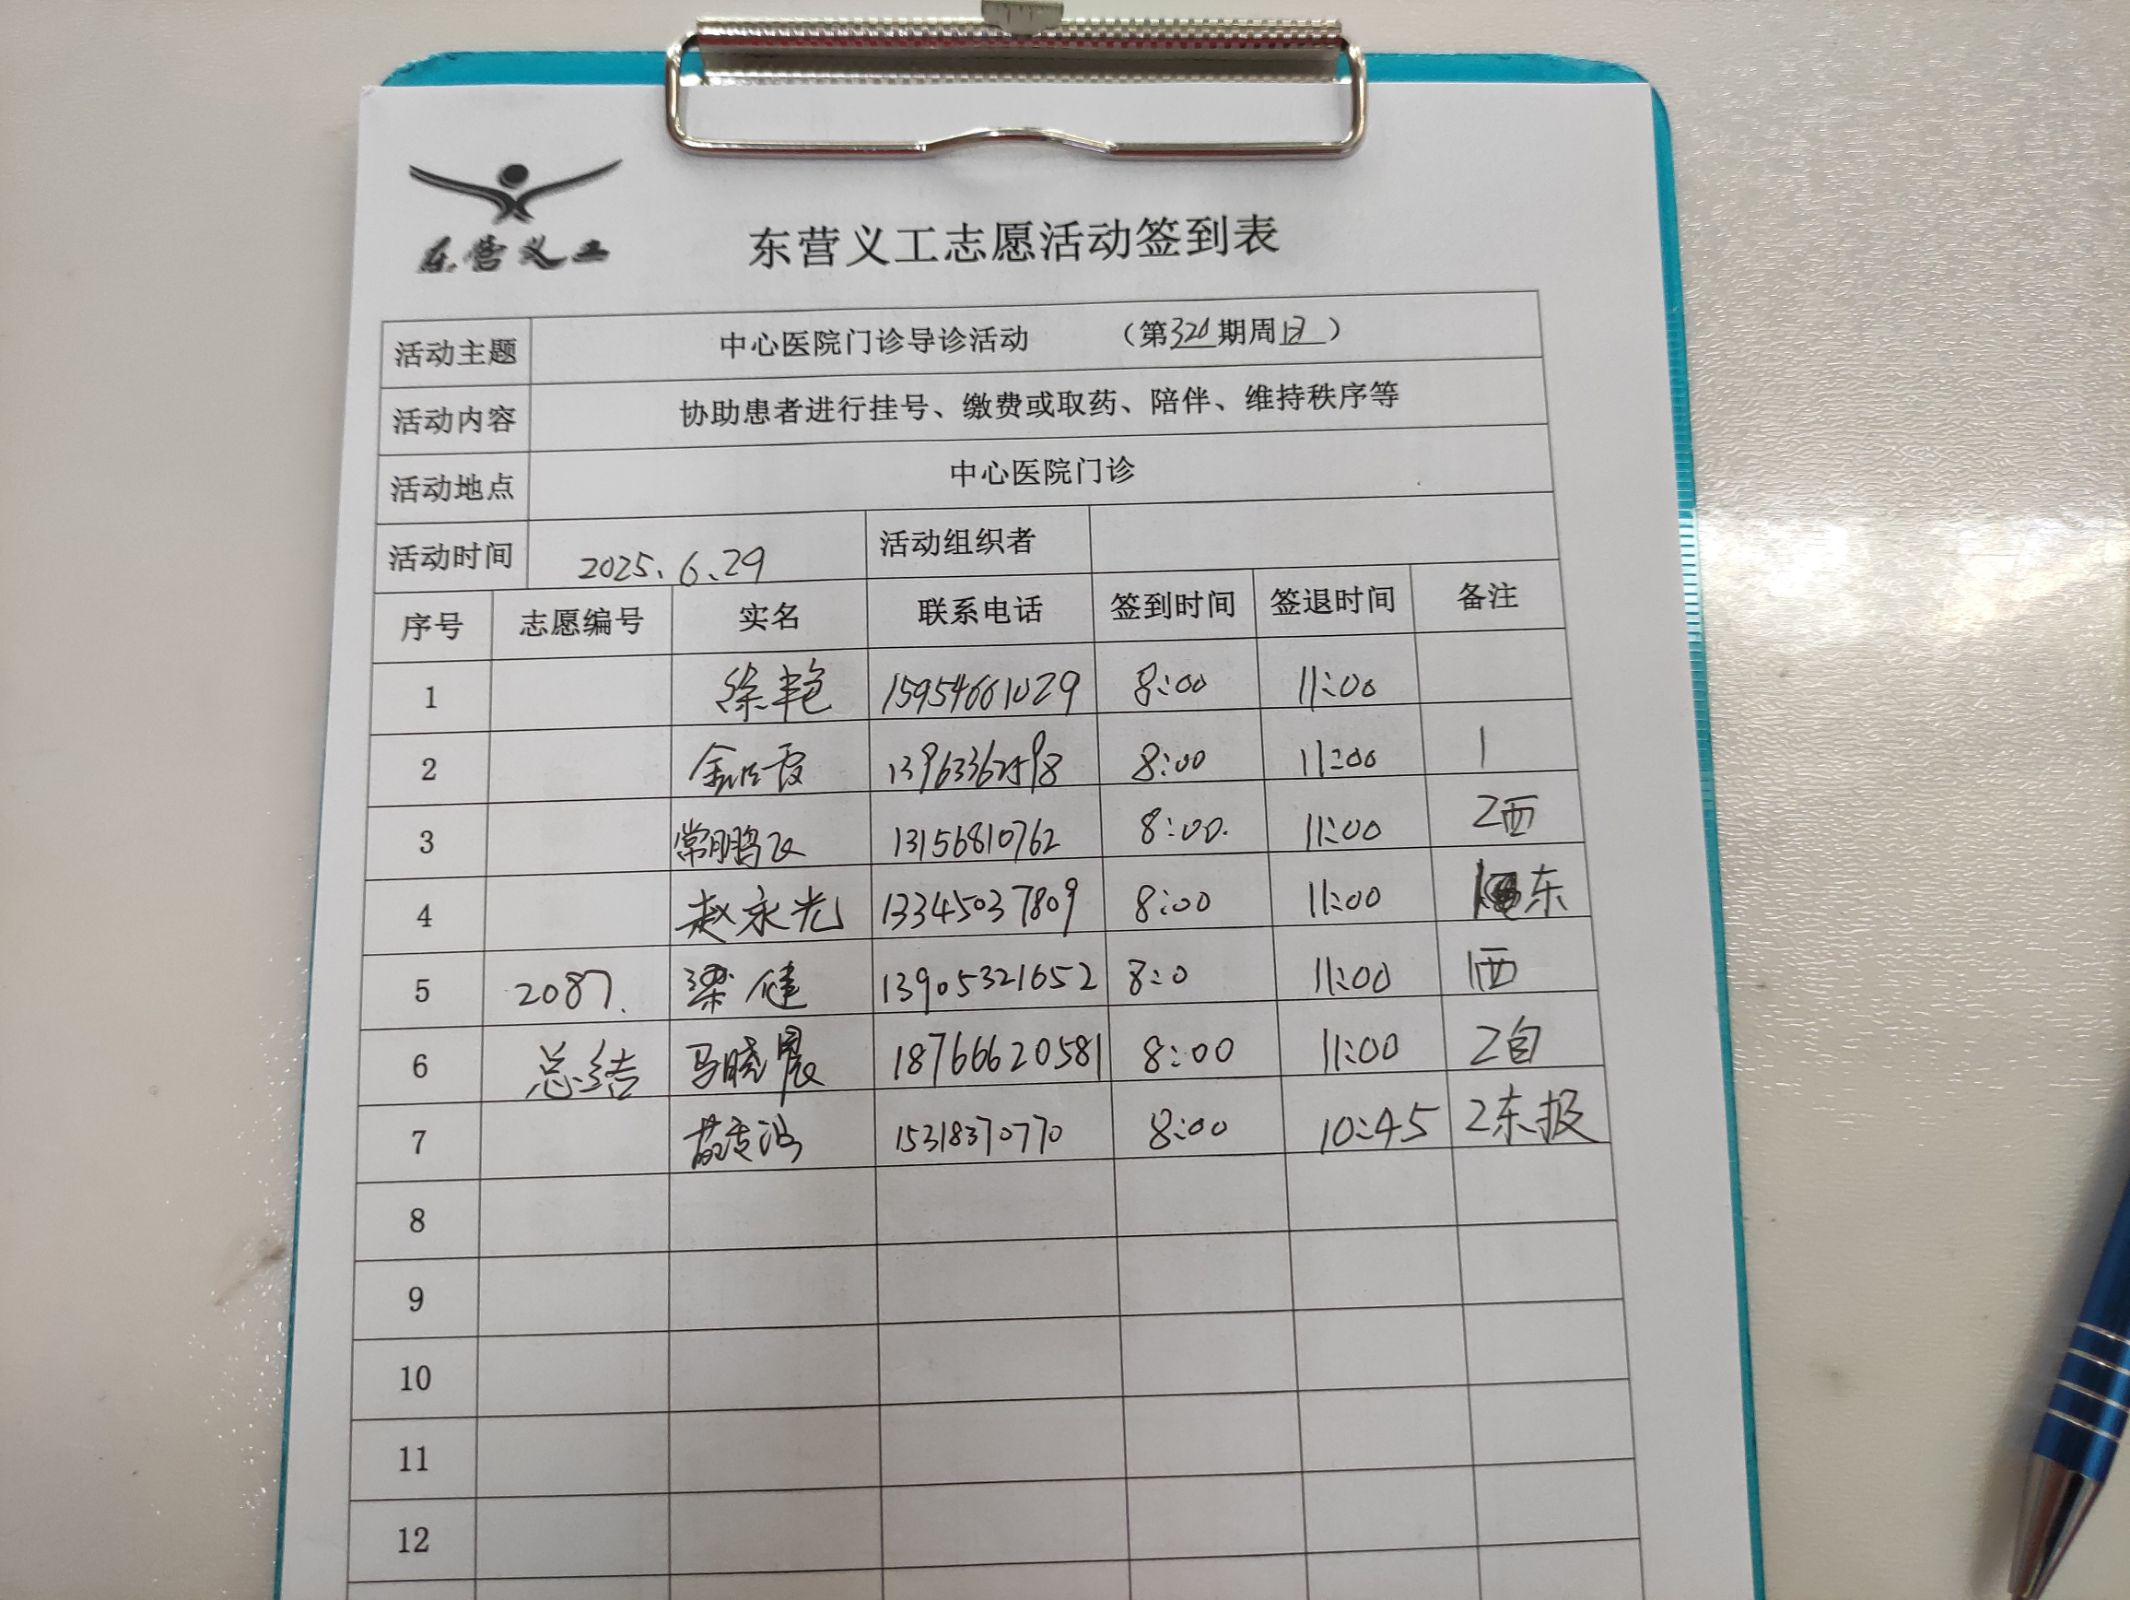 东营义工
东营义工志愿活动签到表
活动主题 中心医院门诊导诊活动 （第320期周日）
活动内容 协助患者进行挂号、缴费或取药、陪伴、维持秩序等
活动地点 中心医院门诊
活动时间 2025.6.29 活动组织者
序号 志愿编号 实名 联系电话 签到时间 签退时间 备注
1 徐艳 15954661029 8:00 11:00
2 13963362598 8:00 11:00 1
3 常鹏飞 13156810762 8:00. 11:00 2西
4 赵永光 13345037809 8:00 11:00 东
5 2087. 梁健 13905321652 8:0 11:00 1西
6 总结 马晓晨 18766620581 8:00 11:00 2自
7 15318370770 8:00 10:45 2东报
8
9
10
11
12